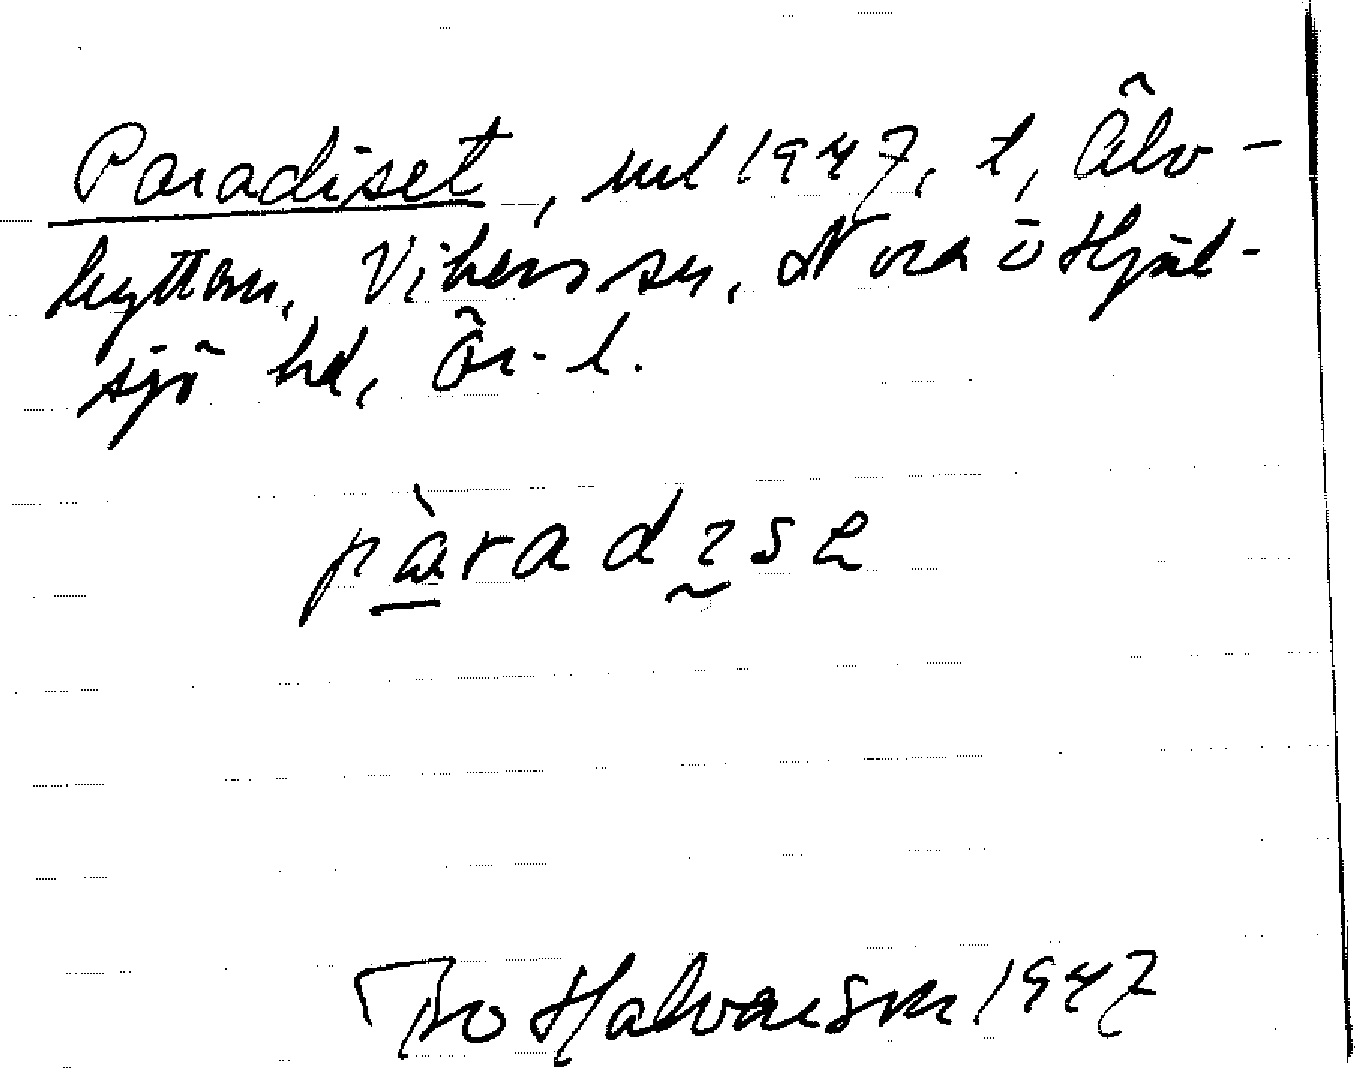 Paradiset, urd 1947, t, Älv-
hyttan, Vikers sn, Nora o Hjul-
sjö hd, Ör. l.
pàradıse
Bo Halvarson 1947